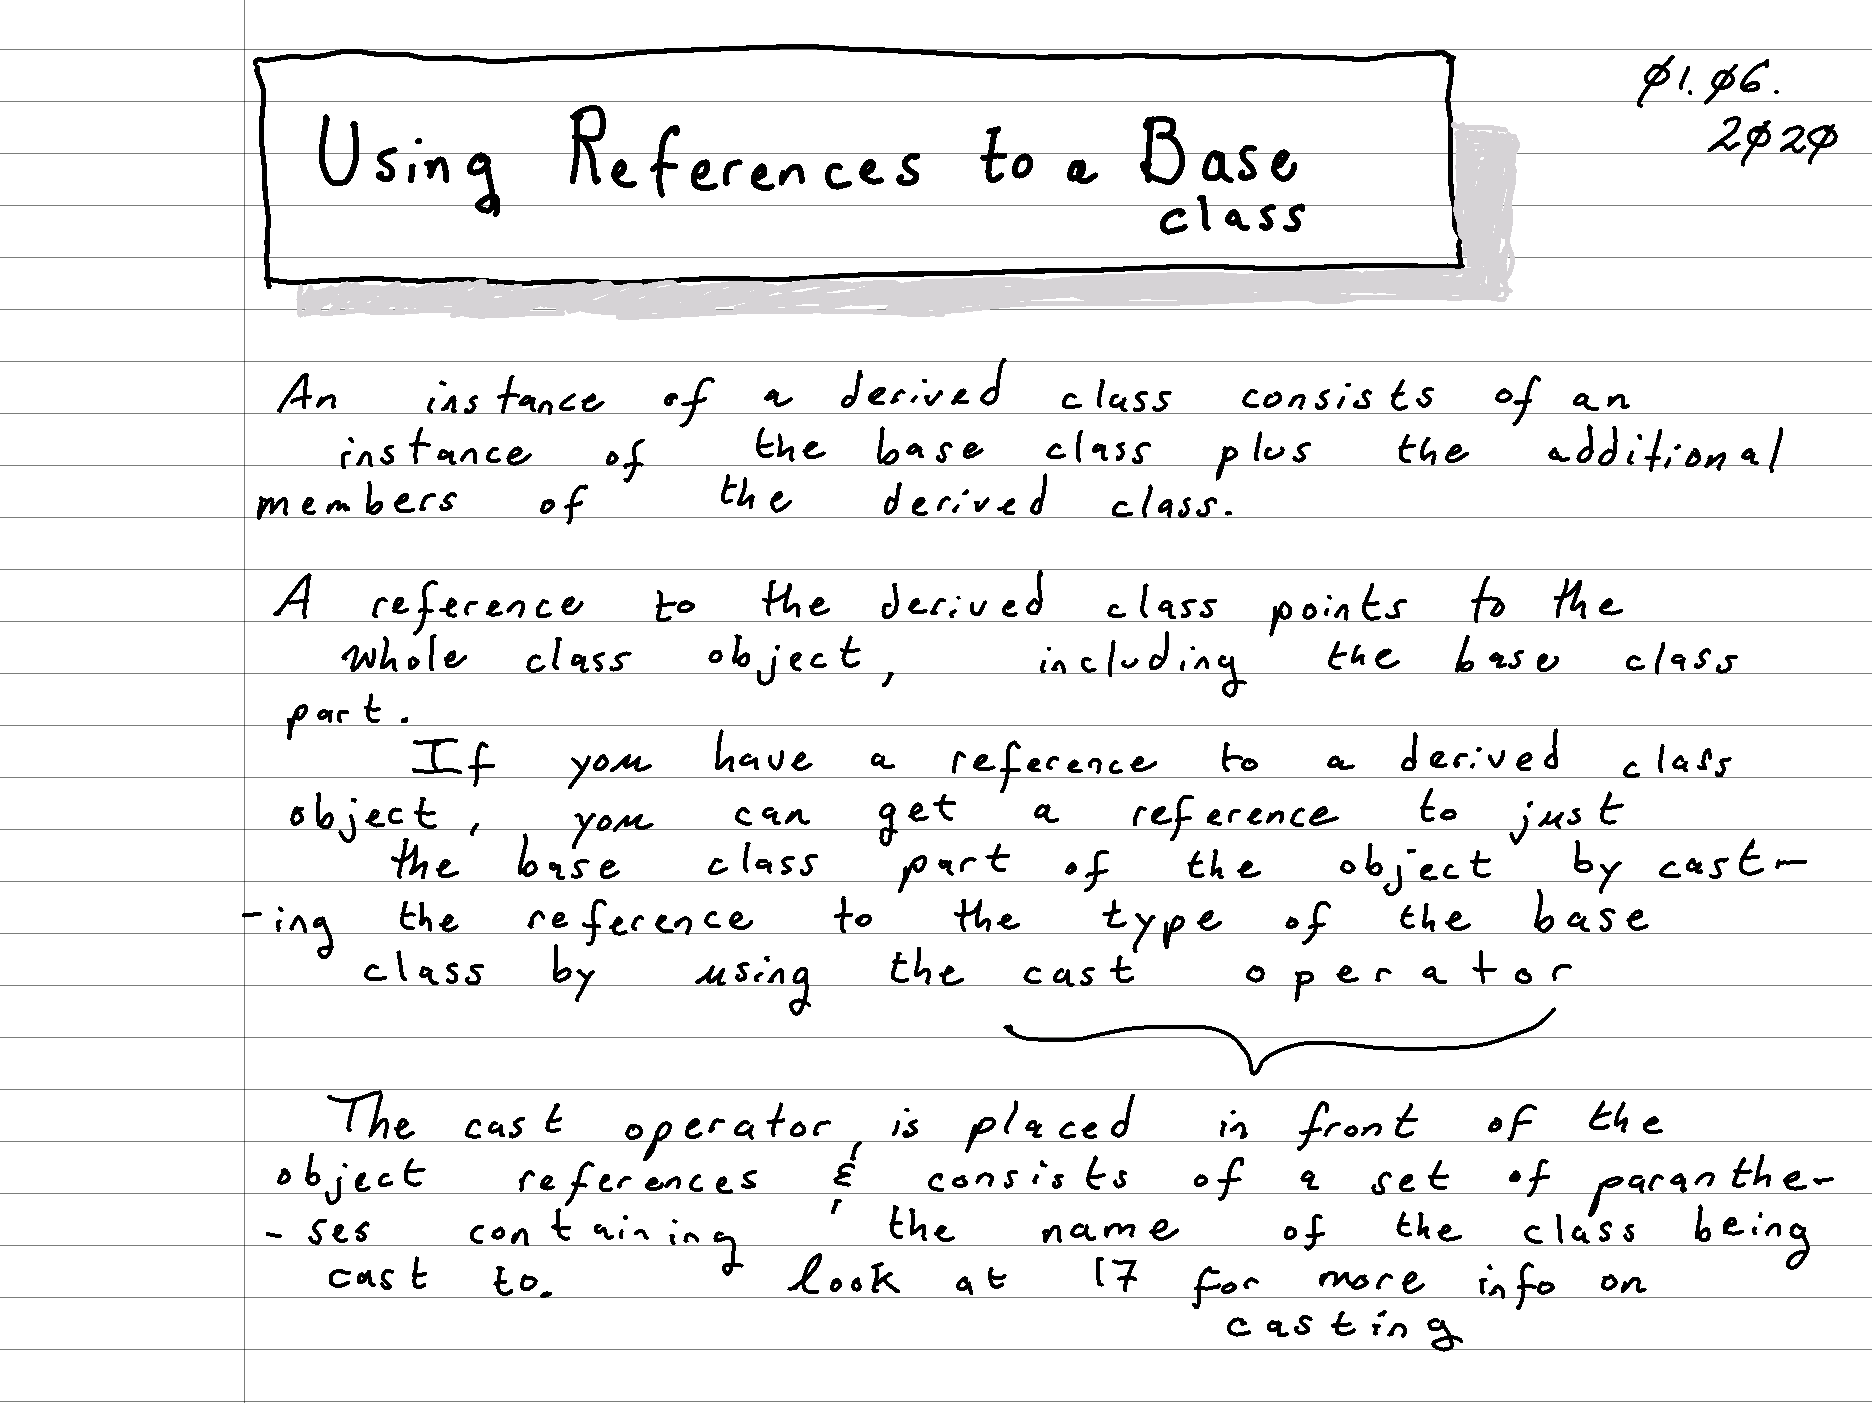 Using References to a Base
class
ø1.ø6.
2ø2ø
An instance of a derived class consists of an
instance of the base class plus the additional
members of the derived class.
A reference to the derived class points to the
whole class object, including the base class
part.
If you have a reference to a derived class
object, you can get a reference to just
the base class part of the object by cast-
-ing the reference to the type of the base
class by using the cast operator
The cast operator is placed in front of the
object references & consists of a set of paranthe-
-ses containing the name of the class being
cast to. look at 17 for more info on
casting